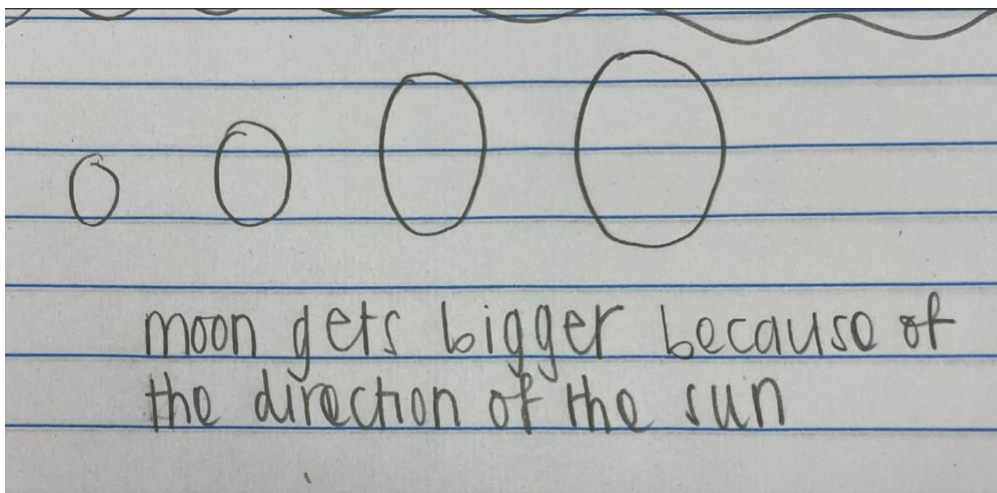 moon gets bigger because of
the direction of the sun